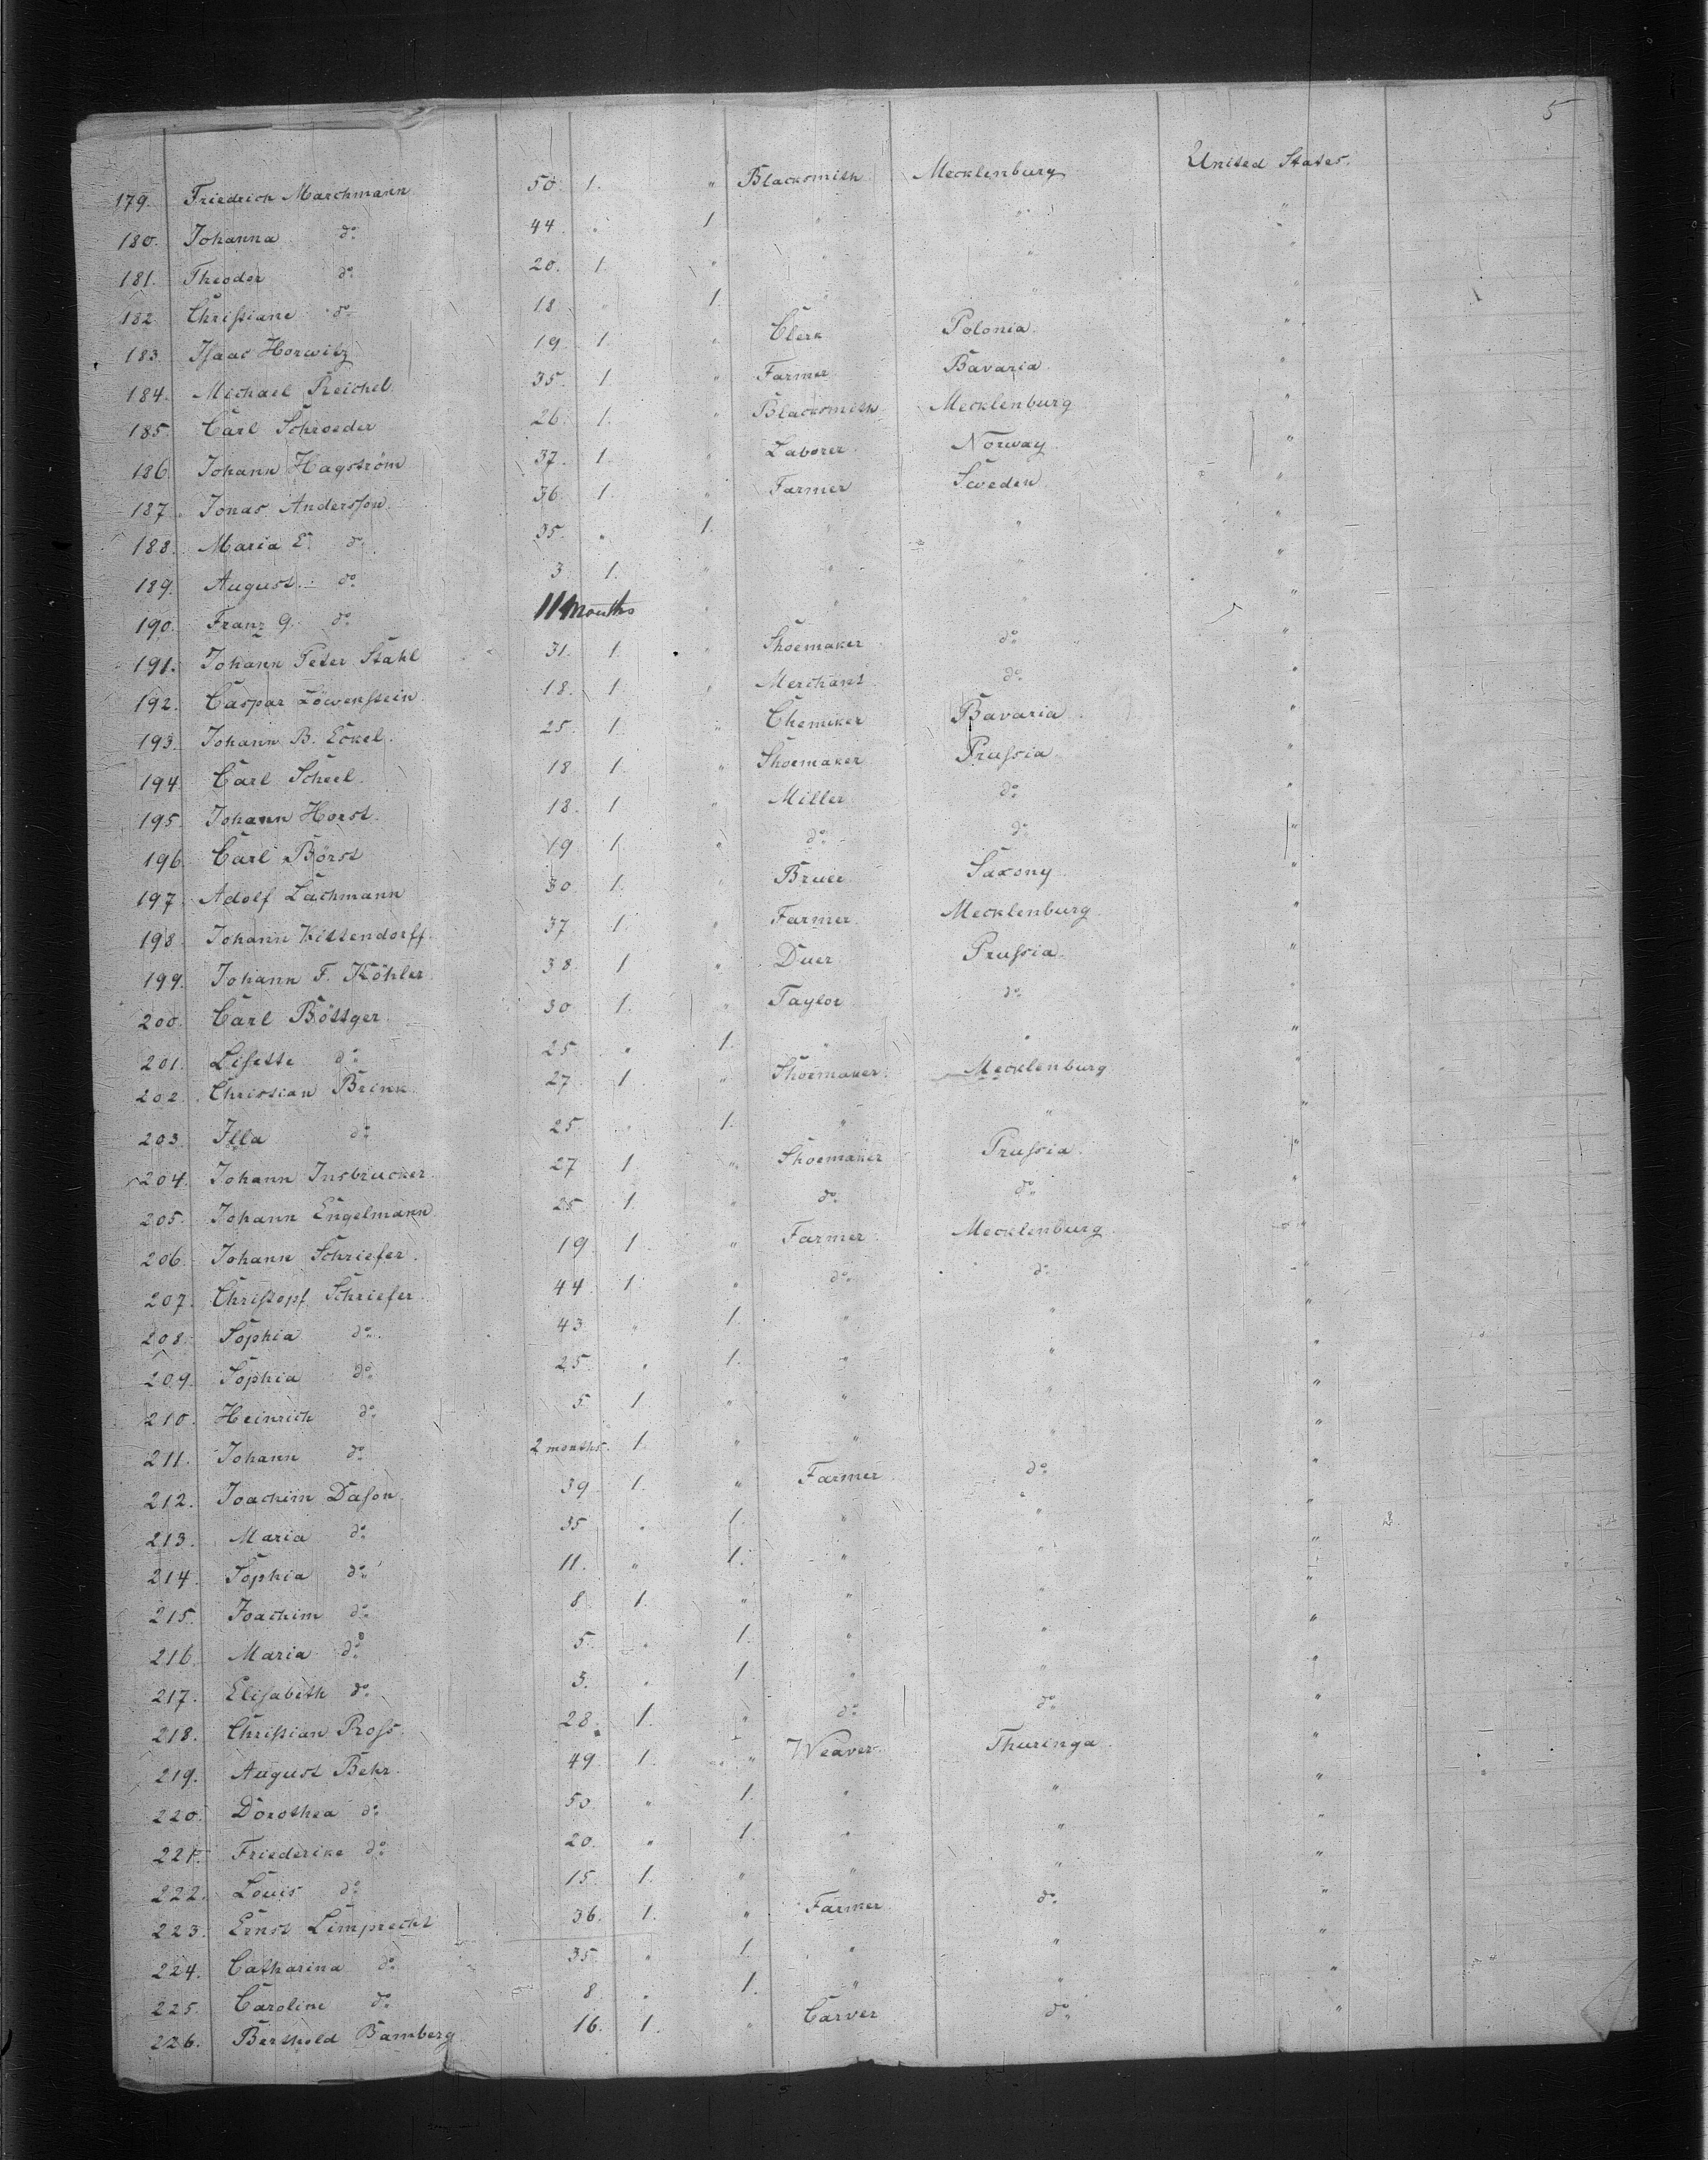 5
179. Friedrich Marchmann 50. 1. " Blacksmith Mecklenburg United States.
180. Johanna do. 44. " 1 " " "
181. Theodor do. 20. 1. " " " "
182. Chrisiane do. 18 " 1. " " "
183. Isaac Horwitz 19. 1. " Clerk Polonia. "
184. Michael Reichel 35. 1. " Farmer Bavaria. "
185. Carl Schroeder 26. 1. " Blacksmith Mecklenburg "
186. Johann Hagström 37. 1. " Laborer. Norway. "
187. Jonas Andersson 36. 1. " Farmer Sweden. "
188. Maria E. do. 35. " 1. " " "
189. August. do. 3 1. " " " "
190. Franz G. do. 11 Months " " " "
191. Johann Peter Stahl 31. 1. " Shoemaker do. "
192. Caspar Löwenstein 18. 1. " Merchant do. "
193. Johann B. Eckel. 25. 1. " Chemiker Bavaria. "
194. Carl Scheel. 18. 1. " Shoemaker Prussia. "
195. Johann Horst. 18. 1. " Miller do. "
196. Carl Börst 19. 1. " do. do. "
197. Adolf Lachmann 30. 1. " Bruer Saxony. "
198. Johann Kittendorff. 37. 1. " Farmer. Mecklenburg. "
199. Johann F. Köhler. 38. 1 " Duer Prussia. "
200. Carl Böttger. 30. 1. " Taylor do. "
201. Lisette do. 25. " 1. " " "
202. Christian Brink 27 1. " Shoemaker. Mecklenburg "
203. Illa do. 25. " 1. " " "
204. Johann Insbrucker. 27 1. " Shoemaker Prussia. "
205. Johann Engelmann. 25. 1. " do. do. "
206. Johann Schriefer. 19. 1. " Farmer Mecklenburg. "
207. Christopf Schriefer. 44. 1. " do. do. "
208. Sophia do. 43. " 1. " " "
209. Sophia do. 25. " 1. " " "
210. Heinrich do. 5. 1. " " " "
211. Johann do. 2 months. 1. " " " "
212. Joachim Dason. 39 1. " Farmer do. "
213. Maria do. 35 " 1. " " "
214. Sophia do. 11. " 1. " " "
215. Joachim do. 8. 1. " " " "
216. Maria do. 5. " 1. " " "
217. Elisabeth do. 3. " 1. " " "
218. Christian Ross. 28. 1. " do. do. "
219. August Behr. 49. 1. " Weaver. Thuringa. "
220. Dorothea do. 50. " 1. " " "
221. Friederike do. 20. " 1. " " "
222. Louis do. 15. 1. " " " "
223. Ernst Limprecht 36. 1. " Farmer. do. "
224. Catharina do. 35. " 1. " " "
225. Caroline do. 8. " 1. " " "
226. Berthold Bamberg 16. 1. " Carver do. "